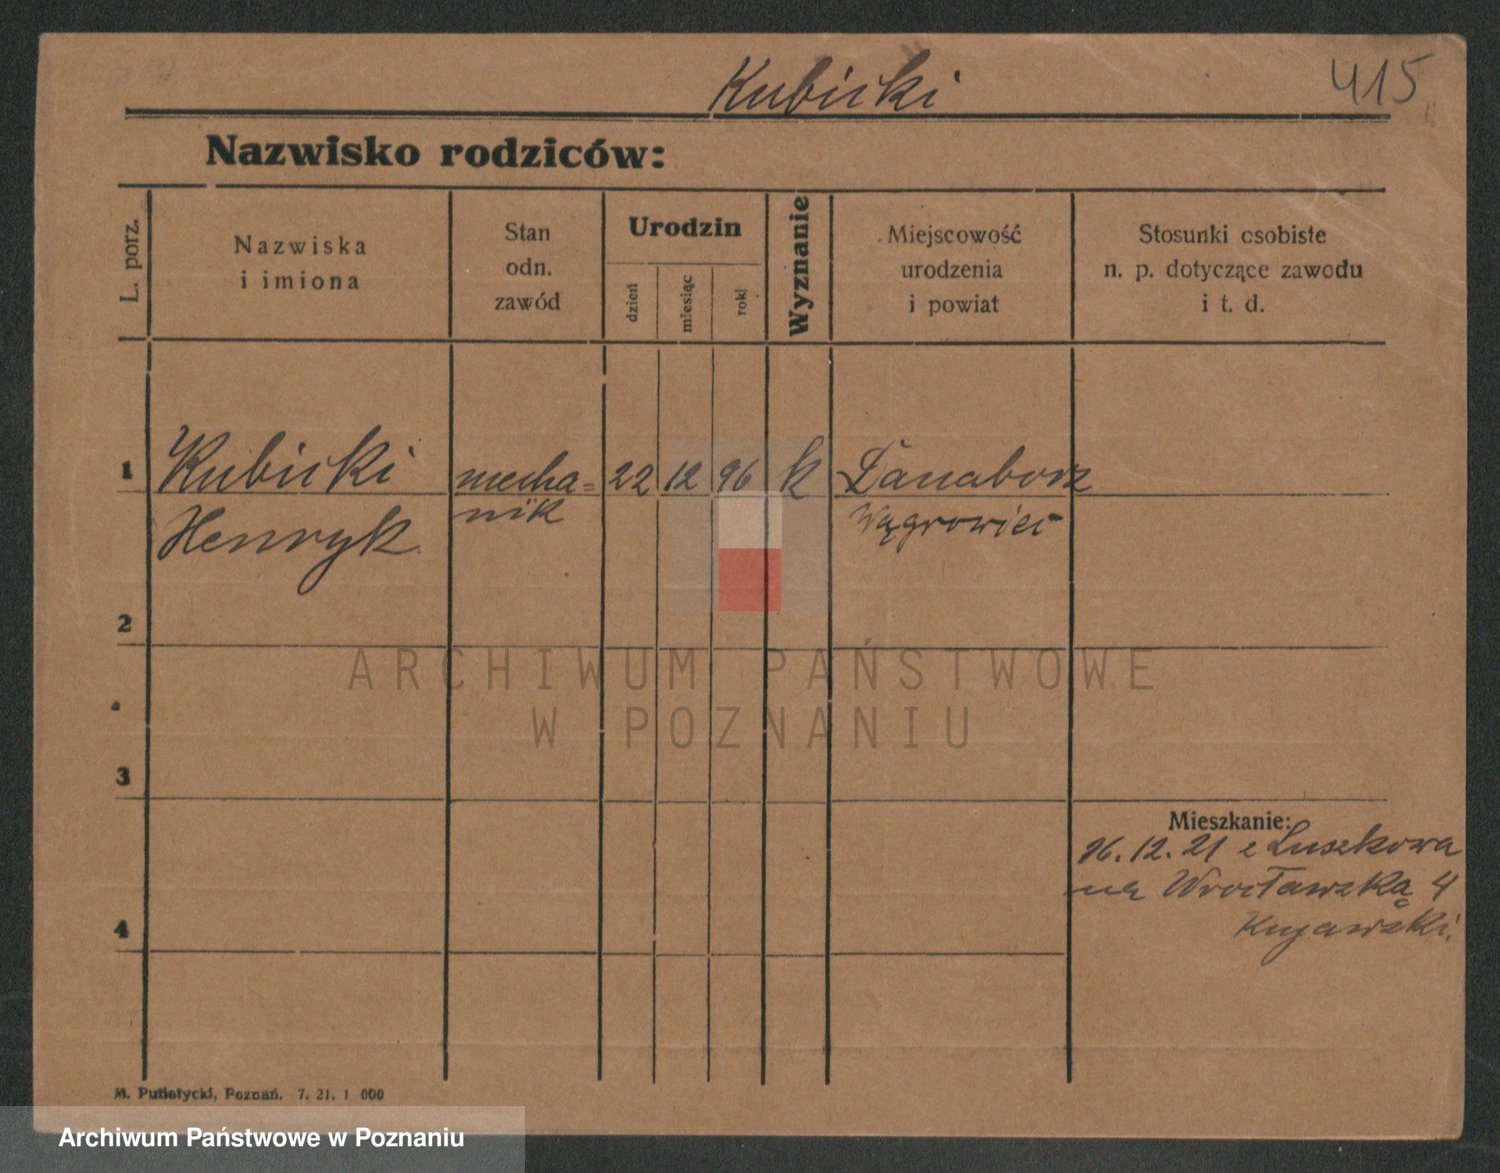 Kubicki
415
Nazwisko rodziców:
L. porz.
Nazwiska
i imiona
Stan
odn.
zawód
Urodzin
dzień
miesiąc
rok
Wyznanie
Miejscowość
urodzenia
i powiat
Stosunki osobiste
n. p. dotyczące zawodu
i t. d.
1
Kubicki
Henryk
mecha=
nik
22
12
96
k
Danaborz
Wągrowiec
2
ARCHIWUM PAŃSTWOWE
W POZNANIU
3
Mieszkanie:
12. 21 z Luszkowa
na Wrocławską 4
Kujawski.
4
M. Putiatycki, Poznań. 7. 21. 1 000
Archiwum Państwowe w Poznaniu